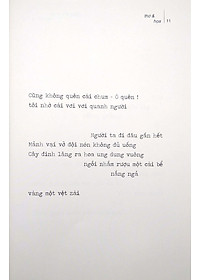 thơ &
họa
11
Cũng không quên cái chum - Ô quên !
tôi nhớ cái vơi vơi quanh người
Người ta đi đâu gần hết
Mảnh vại vỡ đội nón không đủ uống
Cây đinh lăng ra hoa ung dung vuông
ngồi nhắm rượu một cái bể
nằng ngả
vàng một vệt nái